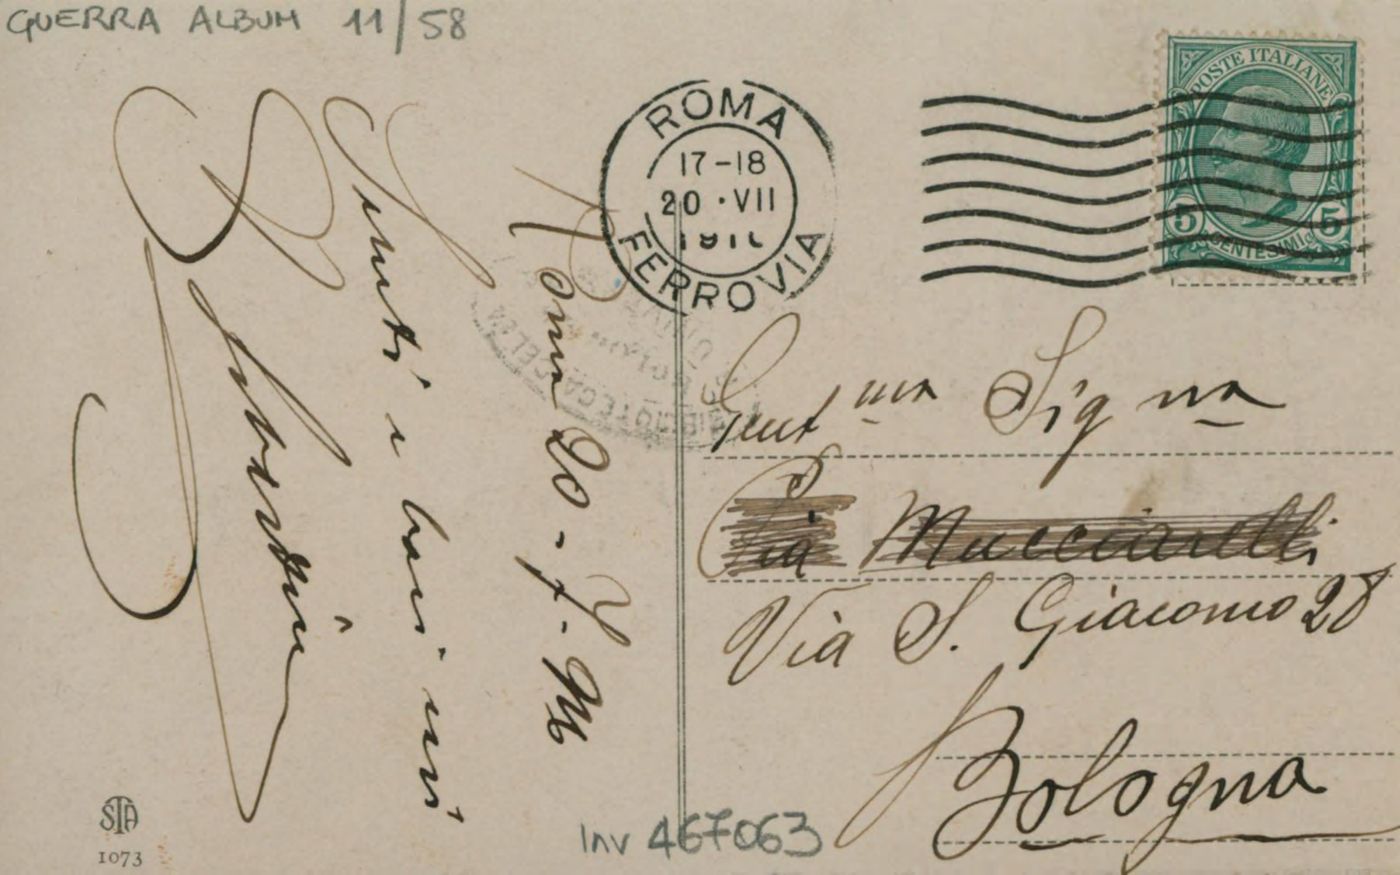 GUERRA ALBUM 11/58
ROMA
17-18
20·VII
FERROVIA
POSTE ITALIANE
5 CENTESIMI 5
Roma 20-7-916
Saluti e baci
Gent ma Sig na
Pia Mucciarelli
Via S. Giacomo 28
Bologna
Inv 467063
STA
1073